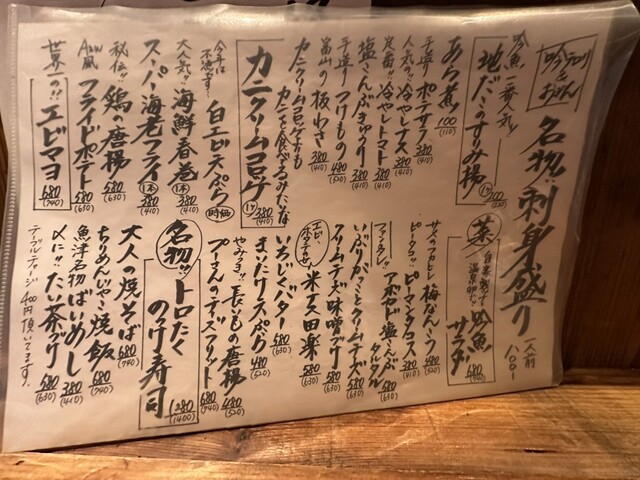 名物!!刺身盛り 一人前
吟魚 一番人気!!
地だこのすり身揚
あら煮!! 100 (110)
手造り ポテサラ 380 (410)
人気!! 冷やしナス 380 (410)
定番!! 冷やしトマト 380 (410)
塩こんぶきゅうり 380 (410)
手造り つけもの 480 (520)
富山の板わさ 380 (410)
カニクリームコロッケよりも
カニを食べるみたいな
カニクリームコロッケ 1ケ 380 (410)
今年は
不漁です…
白エビ天ぷら 時価
大人気!! 海鮮春巻 1本 380 (410)
スーパー海老フライ 1本 380 (410)
秘伝!! 鶏の唐揚 580 (630)
フライドポテト 580 (630)
世界一の!! エビマヨ 680 (740)
菜
吟魚サラダ 680 (740)
梅なんこつ 480 (520)
ピーマンタコス 380 (410)
アボカド塩こんぶ
タルタル
いぶりがっことクリームチーズ 580 (630)
クリームチーズ味噌づけ
米茄田楽 580 (630)
いちじくバター 580 (630)
まいたけ天ぷら 480 (520)
長いもの唐揚 480 (520)
プーさんのチーズフリット 680 (740)
名物!! トロたく
のっけ寿司 1280 (1400)
大人の焼そば 680 (740)
ちりめんじゃこ焼飯 680 (740)
魚津名物 ばいめし 380 (410)
〆に!! たい茶づけ 580 (630)
テーブルチャージ 400円頂いてます。